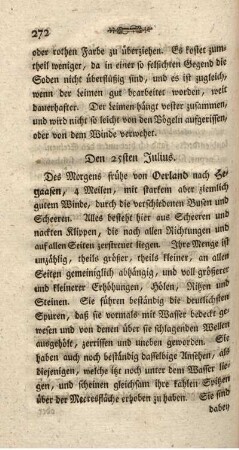 272
oder rothen Farbe zu überziehen. Es kostet zum-
theil weniger, da in einer so felsichten Gegend die
Soden nicht überflüßig sind, und es ist zugleich,
wenn der Leimen gut bearbeitet worden, weit
dauerhafter. Der Leimen hängt vester zusammen,
und wird nicht so leicht von den Vögeln aufgerissen,
oder von dem Winde verwehet.
Den 25sten Julius.
Des Morgens frühe von Oerland nach He-
gaasen, 4 Meilen, mit starkem aber ziemlich
gutem Winde, durch die verschiedenen Busen und
Scheeren. Alles besteht hier aus Scheeren und
nackten Klippen, die nach allen Richtungen und
auf allen Seiten zerstreuet liegen. Ihre Menge ist
unzählig, theils größer, theils kleiner, an allen
Seiten gemeiniglich abhängig, und voll größerer
und kleinerer Erhöhungen, Hölen, Ritzen und
Steinen. Sie führen beständig die deutlichsten
Spuren, daß sie vormals mit Wasser bedeckt ge-
wesen und von denen über sie schlagenden Wellen
ausgehölt, zerrissen und uneben geworden. Sie
haben auch noch beständig dasselbige Ansehen, als
diejenigen, welche itzt noch unter dem Wasser lie-
gen, und scheinen gleichsam ihre kahlen Spitzen
über der Meeresfläche erhoben zu haben. Sie sind
dabey